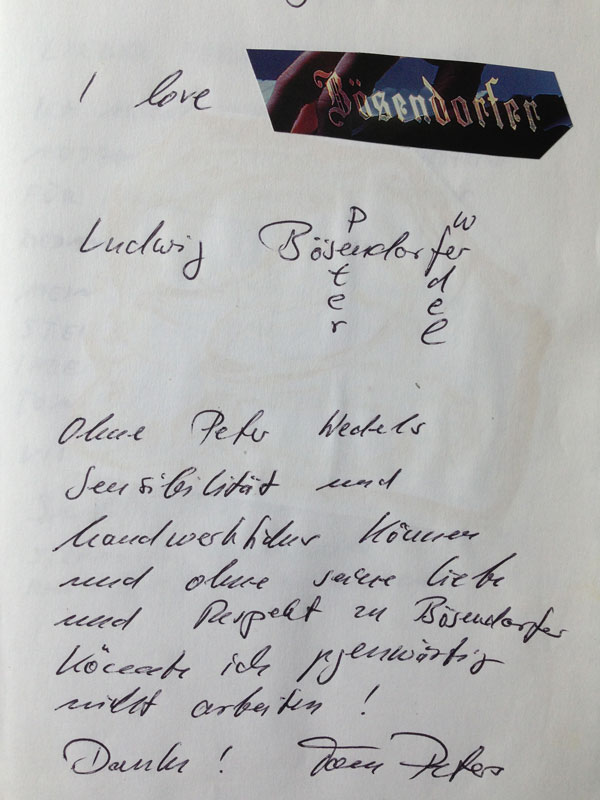 I love Bösendorfer
P w
Ludwig Bösendorfer
t d
e e
r l
Ohne Peter Wedels
Sensibilität und
handwerkliches Können
und ohne seine Liebe
und Respekt zu Bösendorfer
könnte ich gegenwärtig
nicht arbeiten !
Danke ! Tom Peters